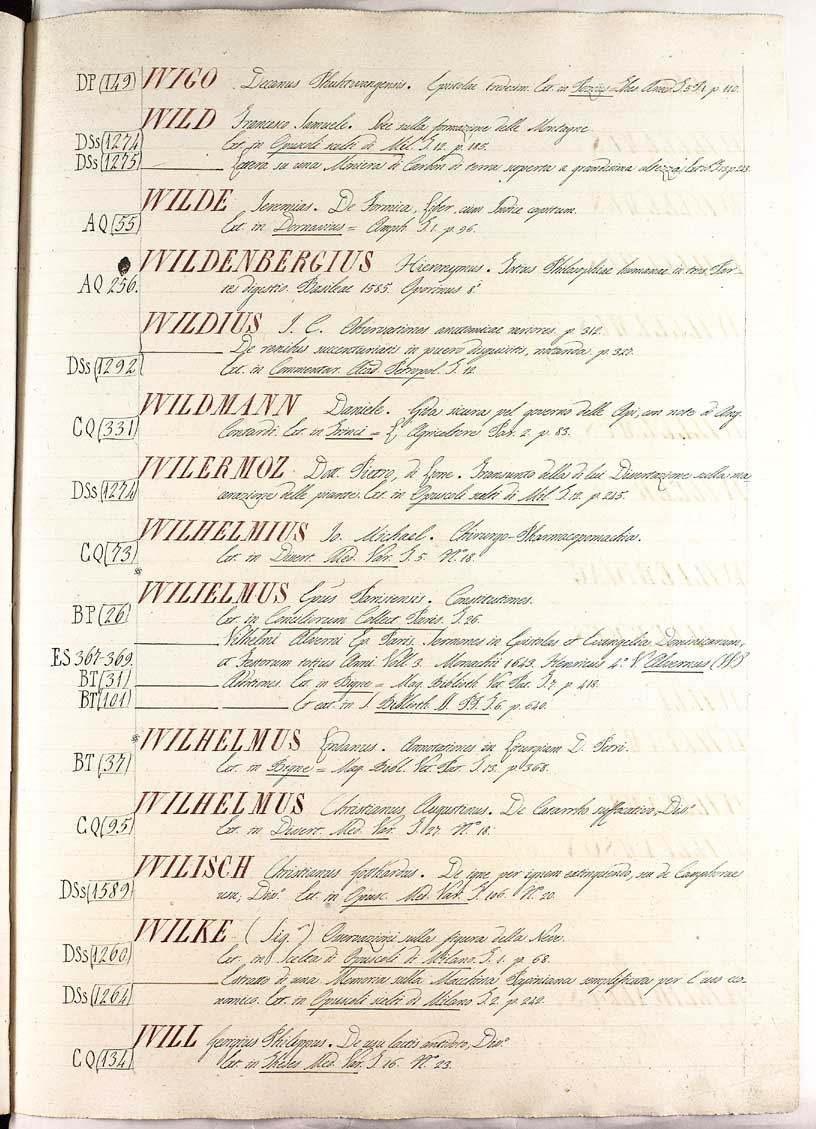 DP (149) WIGO Decanus Epistolae tredecim. Ext. in Thes. Anecd. T. 5. P. 1. p. 110.
WILD Francesco Samuele. Idee sulla formazione delle Montagne.
DSs (1274) Ext. in Opuscoli scelti di Mil. T. 12. p. 185.
DSs (1275) Lettera su una Miniera di Carbon di terra scoperta a grandissima altezza, Ext.
WILDE Jeremias. De Formica, Liber, cum Indice capitum.
AQ (55) Ext. in Dornavius = Amph. T. 1. p. 96.
WILDENBERGIUS Hieronymus. Totius Philosophiae humanae in tres Par-
AQ 256. tes digestio. Basileae 1585. Oporinus 8.
WILDIUS I. C. Observationes anatomicae rariores. p. 312.
De renibus succenturiatis in puero disquisitis, notanda. p. 327.
DSs (1292) Ext. in Commentar. Acad. Petropol. T. 12.
WILDMANN Daniele. Guida sicura pel governo delle Api, con note di Ang.
CQ (331) Contardi. Ext. in Agricoltore Par. 2. p. 83.
WILERMOZ Dott. Pietro, di Lione. Transunto della di lui Dissertazione sulla ma-
DSs (1274) delle piante. Ext. in Opuscoli scelti di Mil. T. 12. p. 245.
WILHELMIUS Io. Michael. Chirurgo-Pharmacopomachia.
CQ (73) Ext. in Dissert. Med. Var. T. 5. N.° 18.
WILIELMUS Epus Parisiensis. Constitutiones.
BP (26) Ext. in Conciliorum Collect. Paris. T. 26.
Vilhelmi Alverni Ep. Paris. Sermones in Epistolas et Evangelia Dominicarum,
ES 367-369. et Festorum totius Anni Voll. 3. Monachii 1643. Henricus 4.° V. Alvernus (W)
BT (31) Additiones. Ext. in Bigne = Mag. Biblioth. Vet. Pat. T. 7. p. 418.
BT (101) Et ext. in I. Biblioth. II. PP. T. 6. p. 640.
WILHELMUS Lindanus. Annotationes in Liturgiam D. Petri.
BT (37) Ext. in Bigne = Mag. Bibl. Vet. Pat. T. 13. p. 368.
WILHELMUS Christianus Augustinus. De Catarrho suffocativo, Diss.
CQ (95) Ext. in Dissert. Med. Var. T. 27. N.° 18.
WILISCH Christianus Gotthardus. De igne per ignem extinguendo, seu de Camphorae
DSs (1589) usu, Diss. Ext. in Opusc. Med. Var. T. 106. N. 20.
WILKE (Sig.r) Osservazioni sulla figura della Neve.
DSs (1260) Ext. in Scelta di Opuscoli di Milano. T. 1. p. 68.
Estratto di una Memoria sulla Macchina Papiniana semplificata per l'uso eco-
DSs (1264) nomico. Ext. in Opuscoli scelti di Milano T. 2. p. 242.
WILL Georgius Philippus. De usu lactis antidoto, Diss.
CQ (134) Ext. in Theses Med. Var. T. 16. N.° 23.